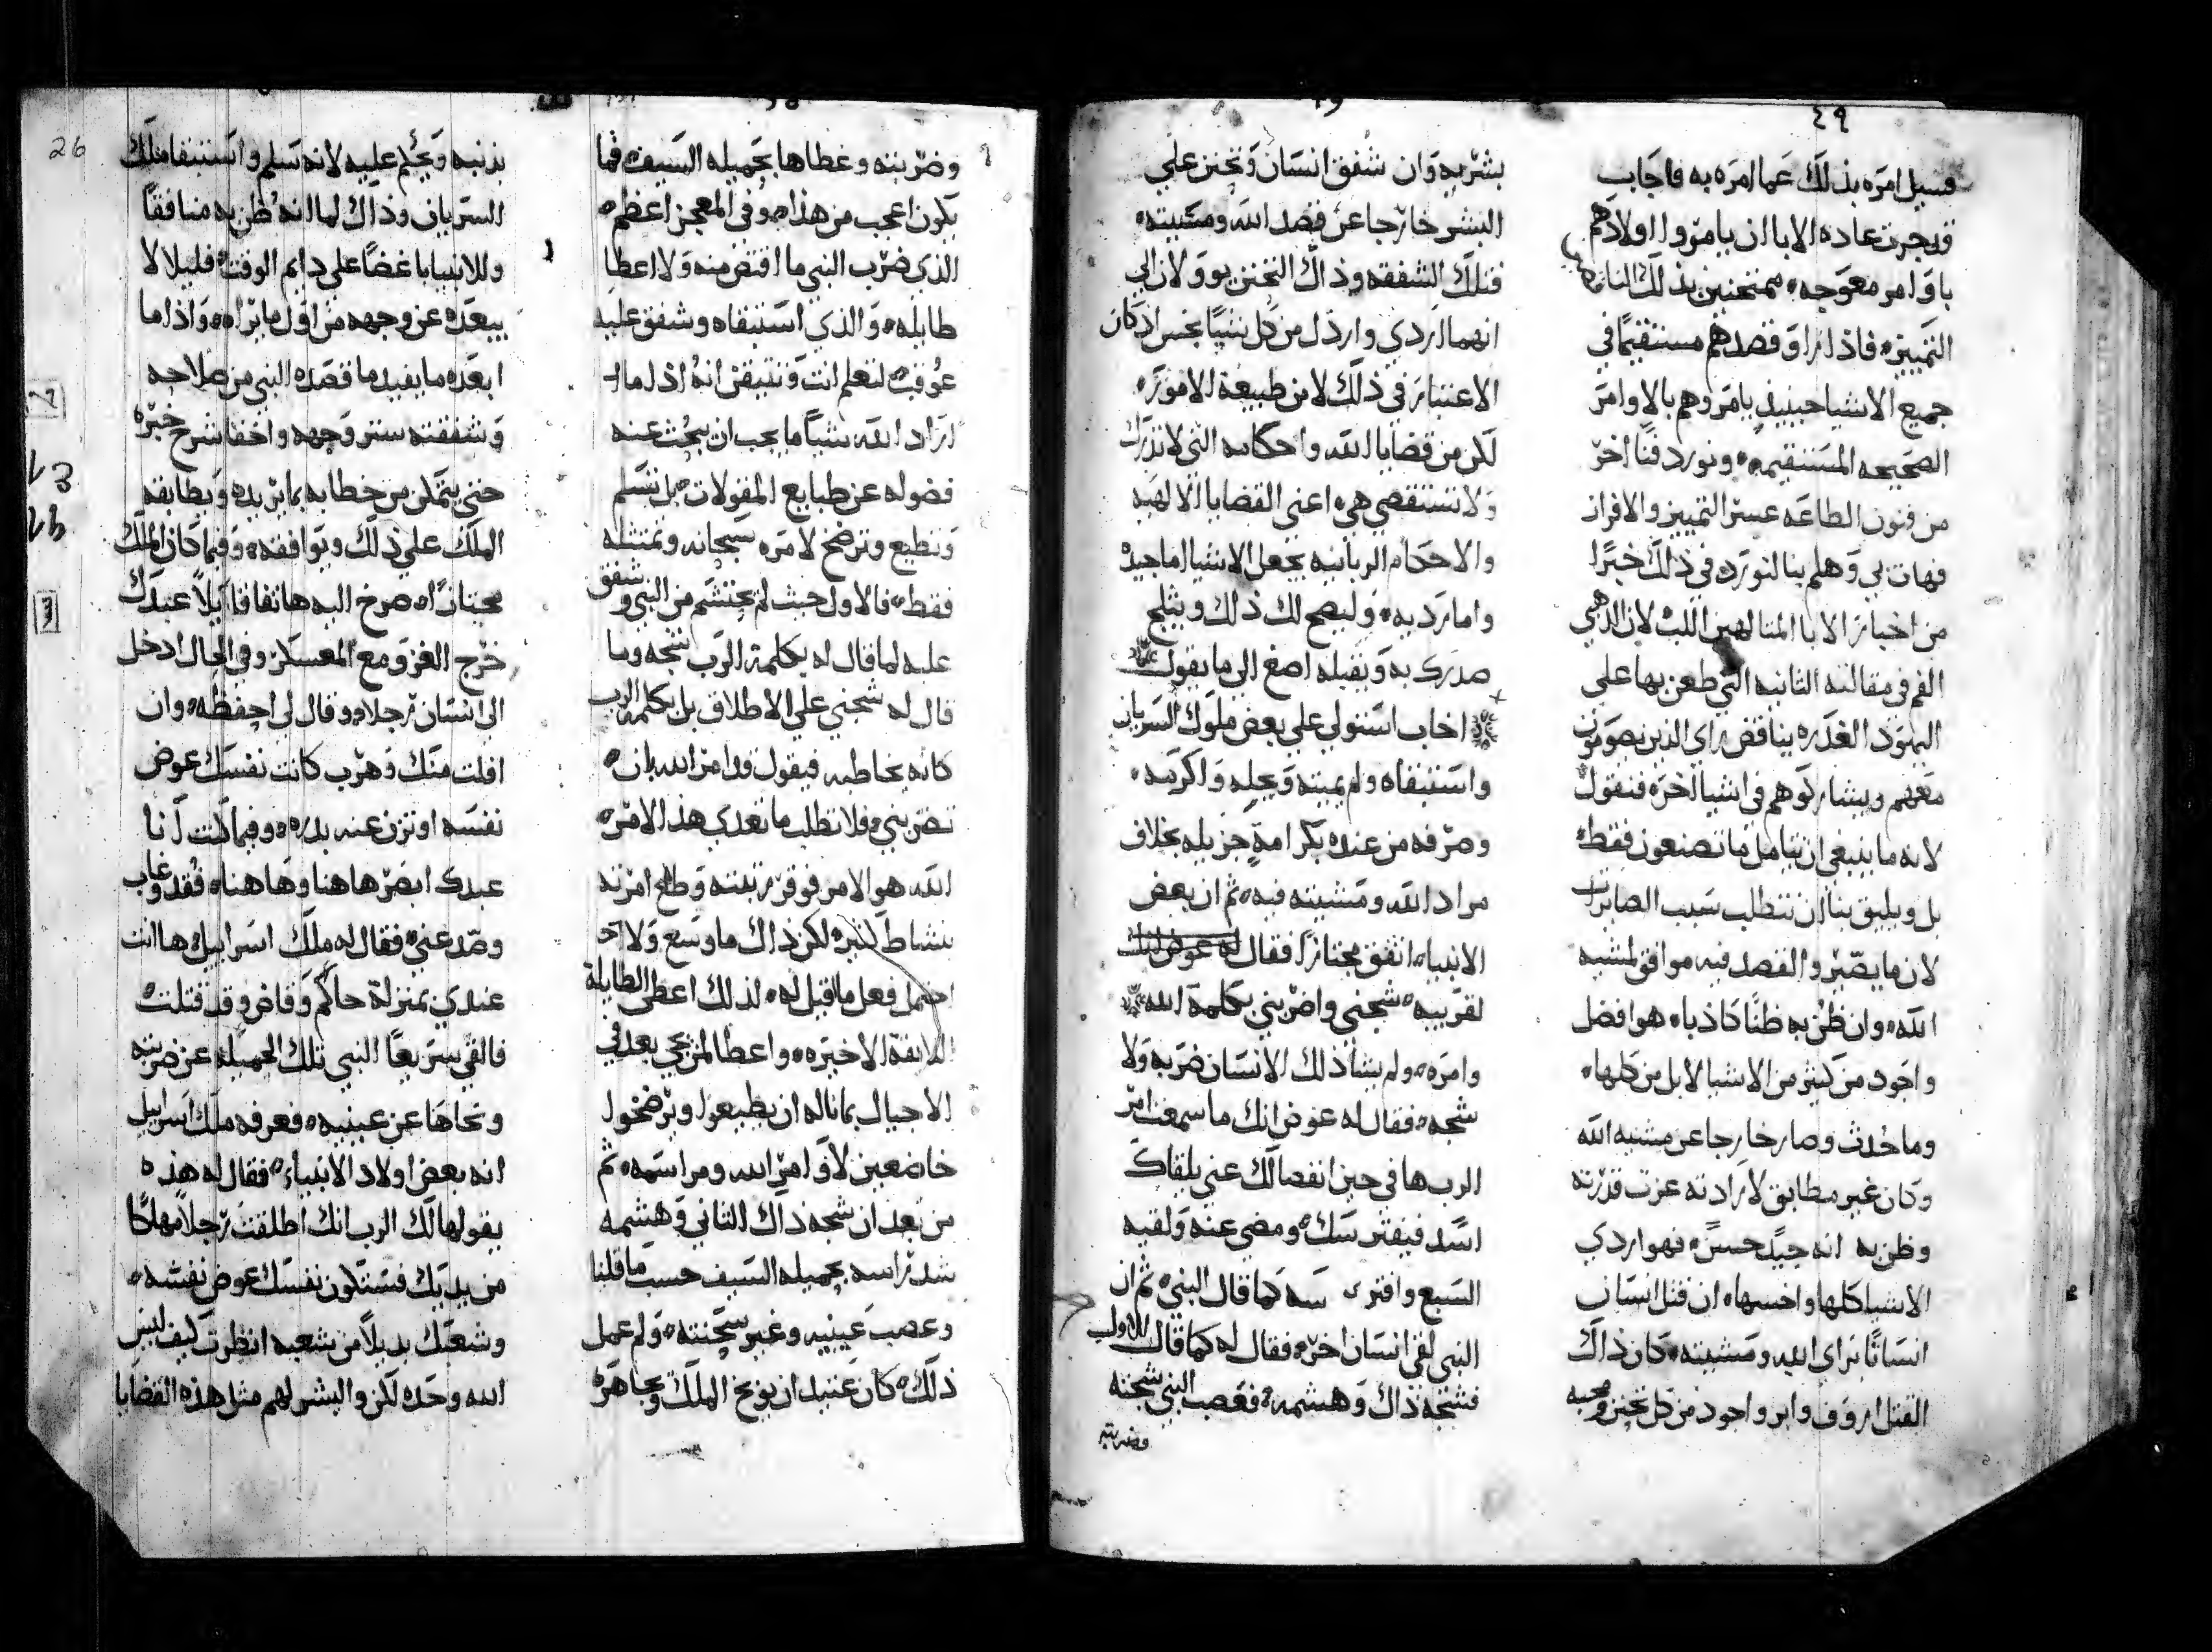 ٤٩
فسيل امره بذلك عما امره به فاجاب
قد جرت عاده الابا ان يامروا اولادهم
باوامر معوجه ممتحنين بذلك
التمييز فاذا راو قصدهم مستقيما في
جميع الاشيا حينيذ يامروهم بالاوامر
الصحيحه المستقيمه ونورد فنا اخر
من فنون الطاعه عسر التمييز والافراز
فهات بي وهلم بنا لنورد في ذلك خبرا
من اخبار الابا المتالهين اللب لان الذهبي
الفم في مقالته الثانيه التي طعن بها على
اليهود الغدره يناقض راي الذين يصومون
معهم ويشاركوهم في اشيا اخره فنقول
لانه ما ينبغي ان نتامل ما تصنعون فقط
بل ويليق بنا ان نتطلب سبب الصايرات
لان ما يصير والقصد فيه موافق لمشيه
الله وان ظن به ظنا كاذبا هو افضل
واجود من كثير من الاشيا لا بل من كلها
وما حدث وصار خارجا عن مشيه الله
وكان غير مطابق لارادته عزت قدرته
وظن به انه جيد حسن فهو اردي
الاشيا كلها واخسها ان قتل انسان
انسانا براي الله ومشيته كان ذاك
القتل اروف وابر واجود من كل تحنن ومحبه
بشريه وان شفق انسان وتحنن علي
البشر خارجا عن قصد الله ومشيته
فتلك الشفقه وذاك التحنن يوولان الي
انهما اردي وارذل من كل شيا نجس اذ كان
الاعتبار في ذلك لا من طبيعة الامور
لكن من قضايا الله واحكامه التي لا تدرك
ولا تستقصي هي اعني القضايا الالهيه
والاحكام الربانيه تجعل الاشيا اما جيده
واما رديه وليصح لك ذلك ويثلج
صدرك به وتقبله اصغ الي ما يقول
اخاب استولي علي بعض ملوك السريان
واستبقاه ولم يميته وبجله واكرمه
وصرفه من عنده بكرامة جزيله بخلاف
مراد الله ومشيته فيه ثم ان بعض
الانبياء اتفق مجتازا فقال له عوض انك
لقريبه شجني واضربني بكلمة الله
وامره ولم يشا ذلك الانسان ضربه ولا
شجه فقال له عوض انك ما سمعت امر
الرب ها في حين انفصالك عني يلقاك
اسد فيفترسك ومضي عنه ولقيه
السبع وافتر سه كما قال النبي ثم ان
النبي لقي انسان اخر فقال له كما قال للاول
فشجه ذاك وهشمه فعصب النبي شجته
وضربته
26
وضربته وغطاها بجميله السيف فما
يكون اعجب من هذا وفي المعجز اعظم
الذي ضرب النبي ما اقتض منه ولا اعطا
طايله والذي استبقاه وشفق عليه
عوقب لتعلم انت وتتيقن انه اذا ما
اراد الله شيا ما يجب ان يبحث عنه
فضوله عن طبايع المقولات بل نسلم
ونطيع ونرضخ لامره سبحانه ونمتثله
فقط فالاول حيث لم يحتشم من النبي وشفق
عليه لما قال له بكلمة الرب شجه وما
قال له شجني علي الاطلاق بل بكلمة الرب
كانه يخاطبه فيقول قد امر الله بان
تضربني فلا تطلب ما تعدي هذا الامر
الله هو الامر فوقر رتبته وطاع امرته
بنشاط كثير لكن ذاك ما وسع ولا
احتمل فعل ما قبل له لذلك اعطي الطايلة
الاخيره واعطا لمن يجي بعد في
الاجيال بما ناله ان يطيعوا ويرضخوا
خاضعين لاوامر الله ومراسمه ثم
من بعد ان شجه ذاك الثاني وهشمه
شد راسه بجميله السيف حسب ما قلنا
وعصب عينيه وغير سحنته ولم عمل
ذلك كان عتيد ان يوبخ الملك ويجاهره
بذنبه ويحكم عليه لانه سلم واستبقا ملك
السريان وذاك لما انه ظن به منافقا
وللانبيا باغضا علي دايم الوقت فليلا لا
يبعده عن وجهه من اول ما يراه واذا ما
ابعده ما يفيد ما قصده النبي من صلاحه
وشفقته ستر وجهه واخفا شرح خبره
حتي يتمكن من خطابه بما يريده ويطابقه
الملك علي ذلك ويوافقه وفيما كان الملك
مجتازا صرخ اليه هاتفا قايلا عبدك
خرج الغزو مع المعسكر وفي الحال ادخل
الي انسان رجلا وقال لي احفظه وان
افلت منك وهرب كانت نفسك عوض
نفسه او تزن عنه بدره وفيما كنت انا
عبدك ابصر هاهنا وهاهنا فقد وغاب
وصد عني فقال له ملك اسراييل ها انت
عندي بمنزلة حاكم وقاض وقد قتلت
فالقي سريعا النبي تلك الجميله عن ضربته
ونحاها عن عينيه فعرفه ملك اسراييل
انه بعض اولاد الانبياء فقال له هذه
يقولها لك الرب انك اطلقت رجلا مهلكا
من يديك فستكون نفسك عوض نفسه
وشعبك بديلا من شعبه انظرت كيف ليس
الله وحده لكن والبشر لهم مثل هذه القضايا